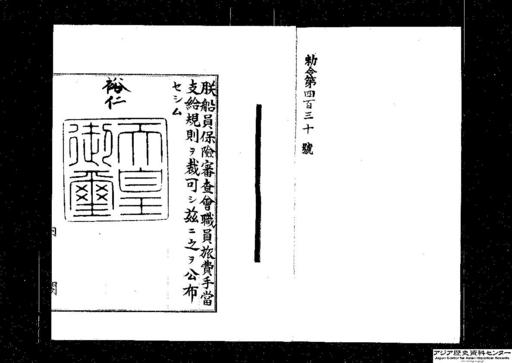 勅令第四百三十號
朕船員保險審査會職員旅費手當
支給規則ヲ裁可シ茲ニ之ヲ公布
セシム
裕仁
天皇
御璽
内閣
アジア歴史資料センター
Japan Center for Asian Historical Records